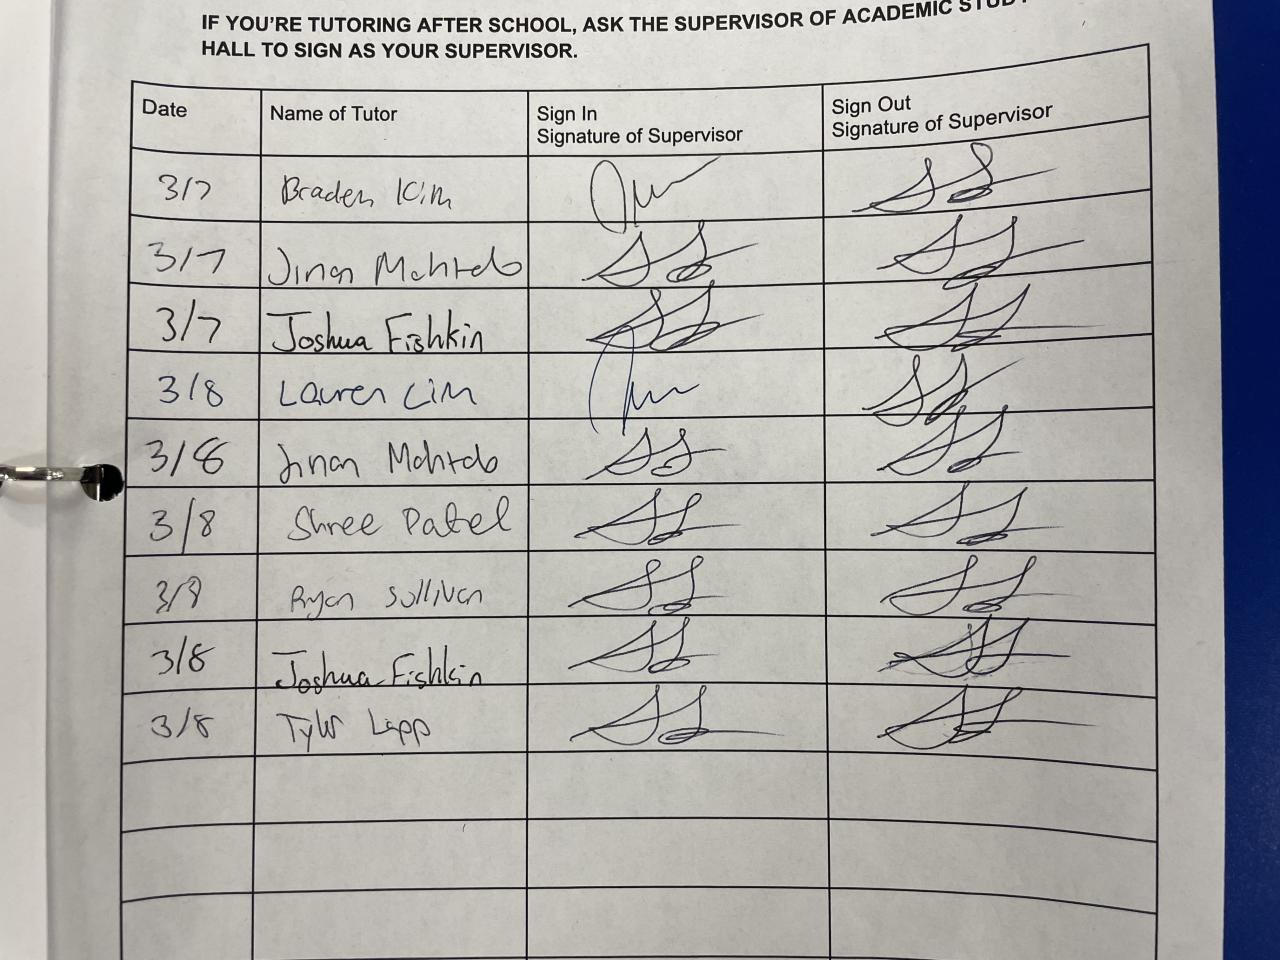 IF YOU'RE TUTORING AFTER SCHOOL, ASK THE SUPERVISOR OF ACADEMIC STUDY
HALL TO SIGN AS YOUR SUPERVISOR.
Date Name of Tutor Sign In Signature of Supervisor Sign Out Signature of Supervisor
3/7 Braden Kim
3/7 Jinan Mahtab
3/7 Joshua Fishkin
3/8 Lauren Lim
3/8 Jinan Mahtab
3/8 Shree Patel
3/8 Ryan Sullivan
3/8 Joshua Fishkin
3/8 Tyler Lapp